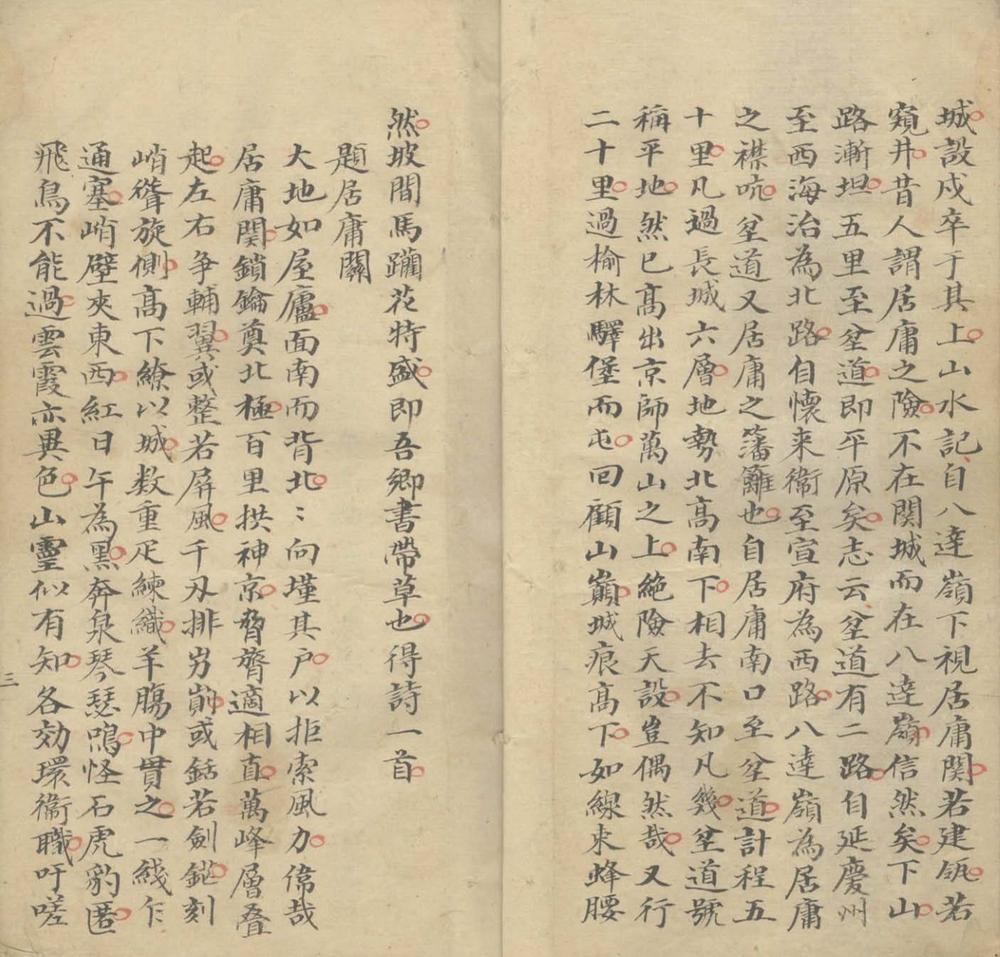 城設戍卒于其上山水記自八達嶺下視居庸関若建瓴若
窺井昔人謂居庸之險不在関城而在八達嶺信然矣下山
路漸坦五里至坌道即平原矣志云坌道有二路自延慶州
至西海治為北路自懷来衛至宣府為西路八達嶺為居庸
之襟吭坌道又居庸之藩籬也自居庸南口至坌道計程五
十里凡過長城六層地勢北高南下相去不知凡幾坌道號
稱平地然已高出京師萬山之上絶險天設豈偶然哉又行
二十里過榆林驛堡而屯回顧山巔城痕高下如線束蜂腰
然坡間馬躝花特盛即吾鄉書帶草也得詩一首
題居庸關
大地如屋廬面南而背北〻向墐其户以拒索風力偉哉
居庸関鎖鑰奠北極百里拱神京脅臍適相直萬峰層叠
起左右争輔翼或整若屏風千刃排岃崱或銛若劍鋋刻
峭聳旋側高下繚以城数重疋練織羊膓中貫之一綫乍
通塞峭壁夾東西紅日午為黑奔泉琴瑟鳴怪石虎豹匿
飛鳥不能過雲霞亦異色山靈似有知各効環衛職吁嗟
三